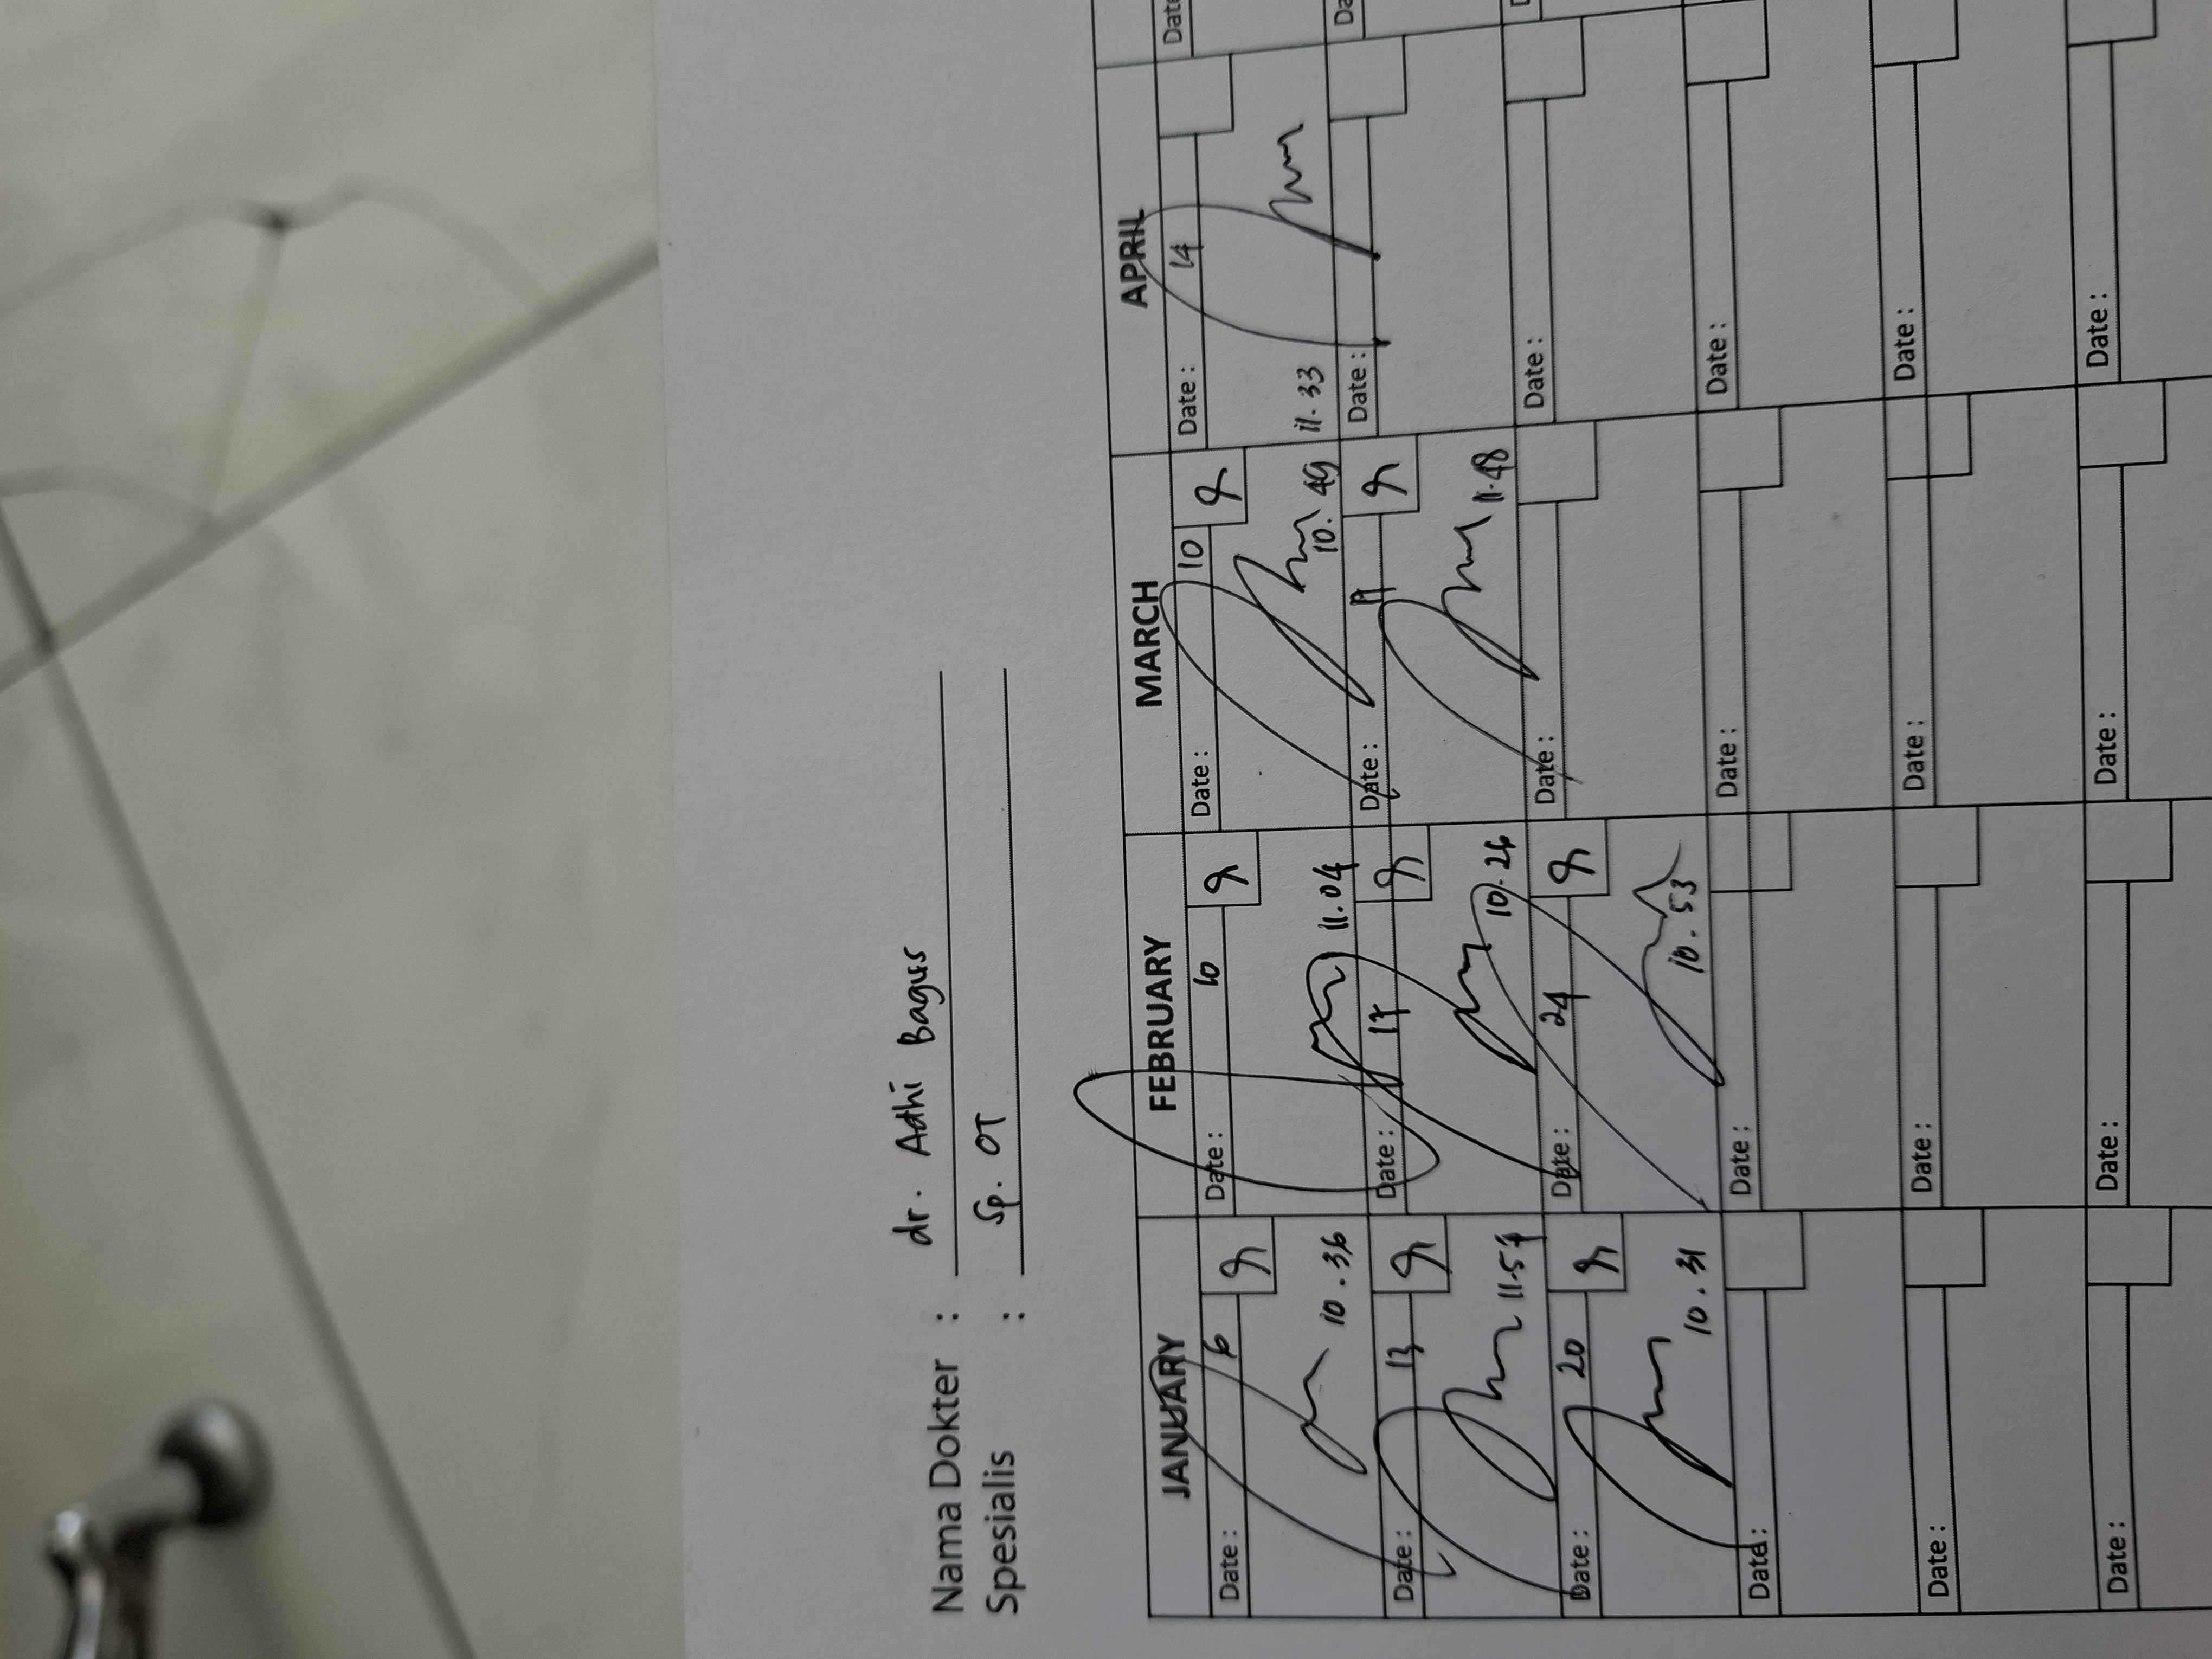 Nama Dokter : dr. Adhi Bagus
Spesialis : Sp. OT
JANUARY FEBRUARY MARCH APRIL
Date : 6 Date : 10 Date : 10 Date : 14 Date
10.36 11.04 10.49 11.33
Date : 13 Date : 17 Date : Date : Da
11.57 10.26 11.48
Date : 20 Date : 24 Date : Date :
10.31 10.53
Date : Date : Date : Date :
Date : Date : Date : Date :
Date : Date : Date : Date :